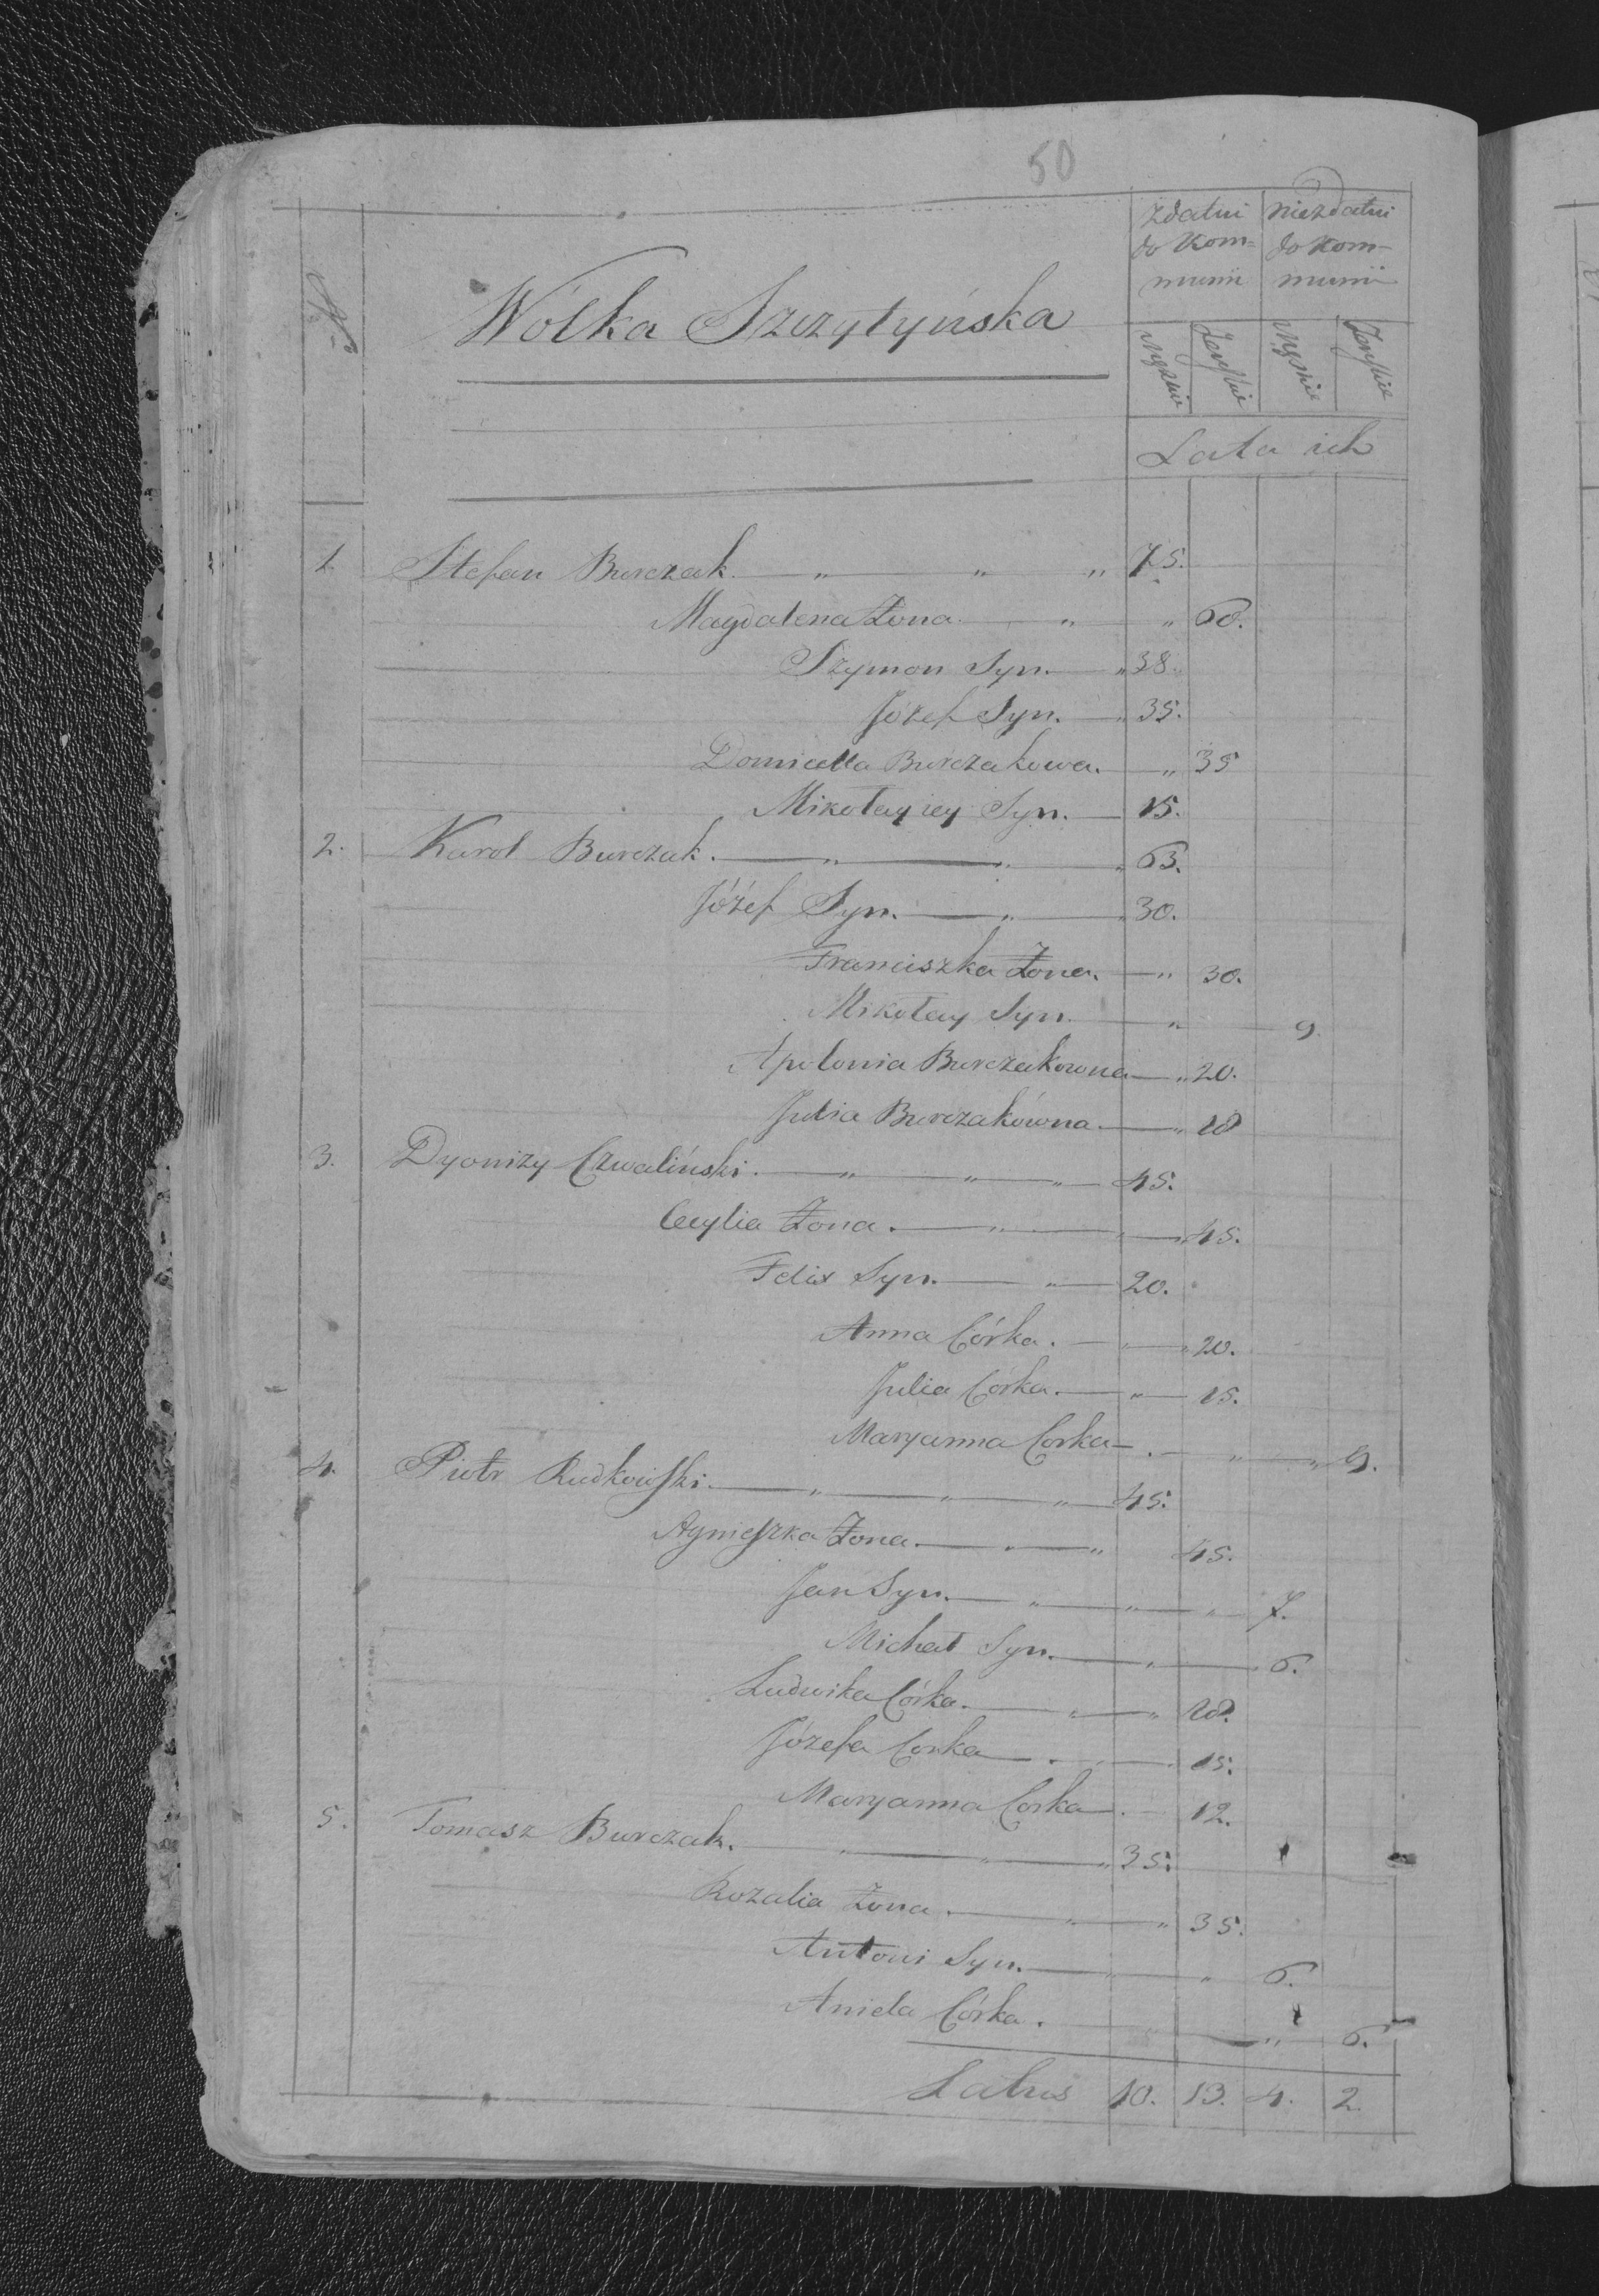 50
No
Wólka Szczytyńska
zdatni do Kom= munii
niezdatni do Kom= munii
Męzkie Żeńskie Męzkie Żeńskie
Lata ich
1. Stefan Burczak. — " — " " 75.
Magdalena Żona — " " 60.
Szymon Syn. — " 38.
Józef Syn. — " 35.
Domicella Burczakowa. — " 35
Mikołay iey Syn. — 15.
2. Karol Burczak. — " — " — " 63.
Józef Syn. — " — " 30.
Franciszka Żona. — " 30.
Mikołay Syn. — " — 9.
Apolonia Burczakowna — " 20.
Julia Burczakówna — " 18
3. Dyonizy Czwaliński. — " — " — " — 45.
Cecylia Żona. — " — " — 45.
Felix Syn. — " — 20.
Anna Córka. — " — " 20.
Julia Córka. — " — 15.
Maryanna Corka — . — " — " 9.
4. Piotr Rudkowski. — " — " — " — 45.
Agnieszka Żona. — " — " 45.
Jan Syn. — " — " — " — 7.
Michał Syn. — " — 6.
Ludwika Córka. — " — " 18.
Józefa Corka — . — 15.
Maryanna Corka — . — 12.
5. Tomasz Burczak. — " — " — " 35.
Rozalia Żona. — " — " 35.
Antoni Syn. — " 6.
Aniela Córka. — " — 6.
Latus 10. 13. 4. 2.